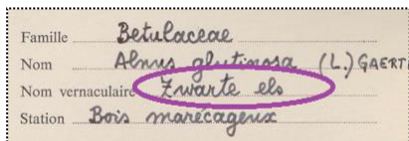 Famille Betulaceae
Nom Alnus glutinosa (L.) GAERT
Nom vernaculaire Zwarte els
Station Bois marécageux